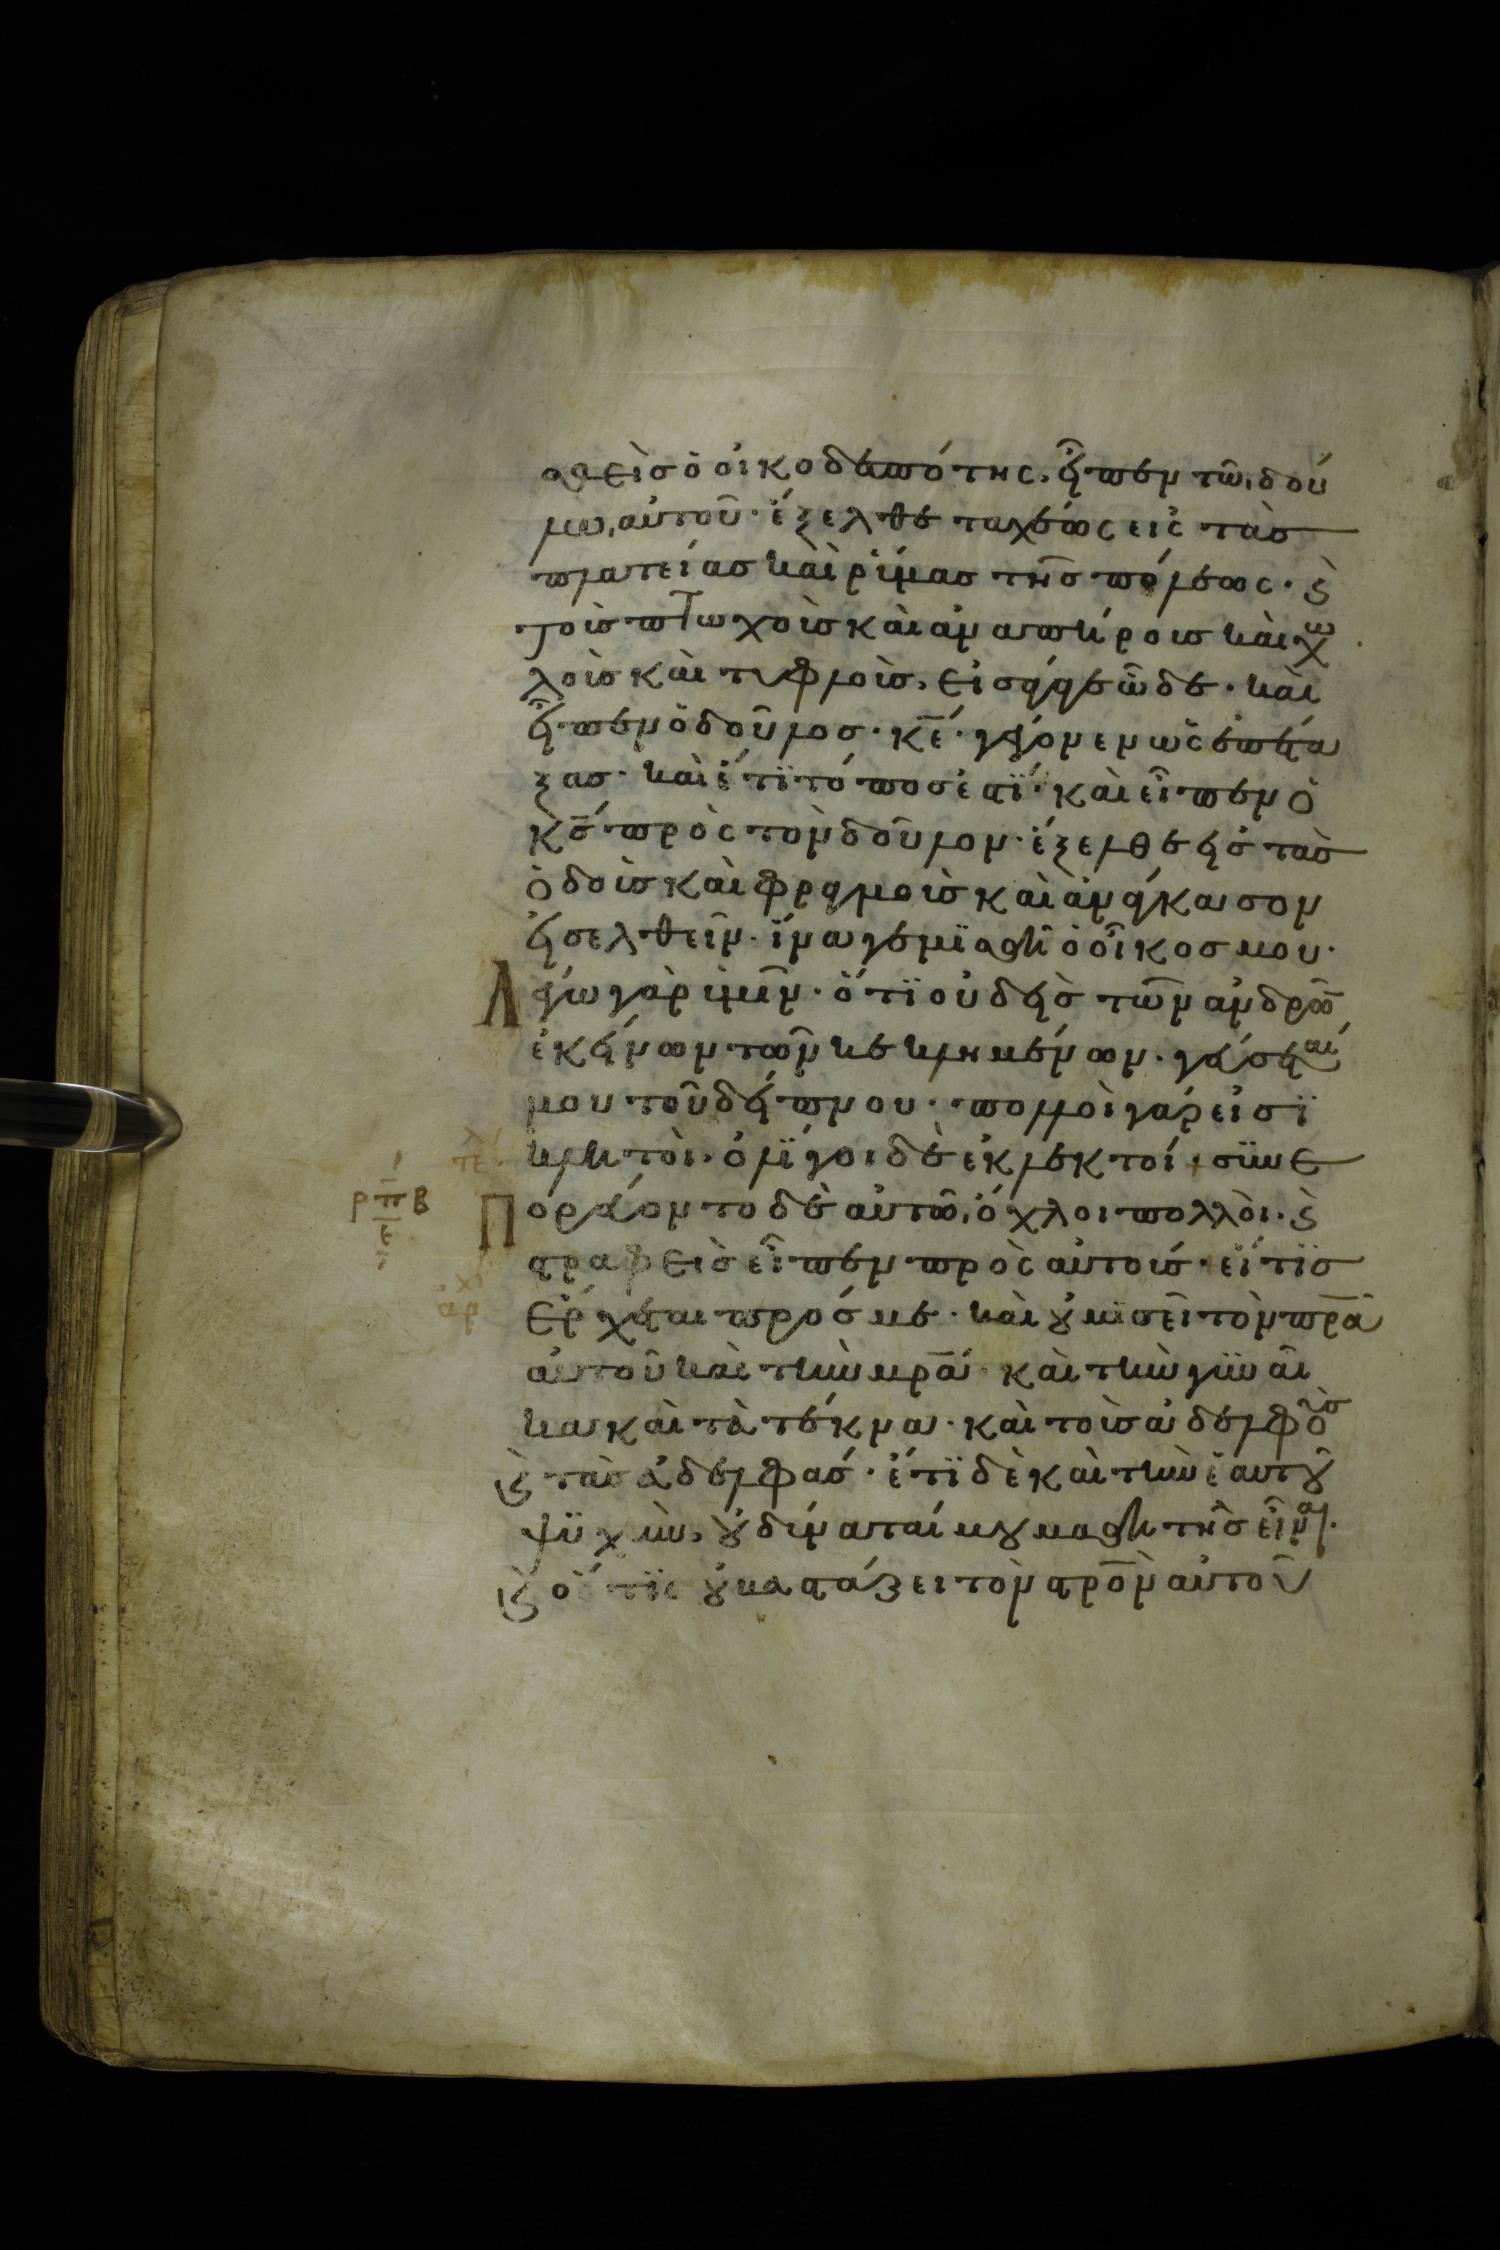 σθεὶσ ὁ οἰκοδεσπότης, εἶπεν τῶ, δού
λω, αὐτοῦ · ἔξελθε ταχέως εἰς τὰσ
πλατείασ καὶ ῥύμασ τῆσ πόλεως · ϗ
τοὺσ πτωχοὺσ καὶ ἀναπήρουσ καὶ χω
λοὺσ καὶ τυφλοὺσ, εἰσάγαγε ὧδε · καὶ
εἶπεν ὁ δοῦλοσ · κ̅ε̅ · γέγονεν ὡς ἐπέτα
ξασ · καὶ ἔτϊ τόποσ ἐστϊ · καὶ εἶπεν ὁ
κ̅σ̅ πρὸς τὸν δοῦλον · ἔξελθε εἰσ τὰσ
ὁδοὺσ καὶ φραγμοὺσ καὶ ἀνάγκασον
εἰσελθεῖν · ἵνα γεμϊσθῆ ὁ οἶκοσ μου ·
Λέγω γὰρ ὑμῖν · ὅτϊ οὐδεὶσ τῶν ἀνδρῶ
ἐκείνων τῶν κεκλημένων · γεύσεταί
μου τοῦ δείπνου · πολλοὶ γάρ εἰσϊ
κλητοὶ · ὀλΐγοι δὲ ἐκλεκτοί · σϋνε
Πορεύοντο δὲ αὐτῶ, ὄχλοι πολλοὶ · ϗ
στραφεὶσ εἶπεν πρὸς αὐτούσ · εἴ τϊσ
ἔρχεται πρόσ με · καὶ οὐ μϊσεῖ τὸν π̅ρ̅α̅
αὐτοῦ καὶ τὴν μ̅ρ̅α̅ · καὶ τὴν γϋναῖ
κα καὶ τὰ τέκνα · καὶ τοὺσ ἀδελφοὺσ
ϗ τὰσ ἀδελφάσ · ἔτϊ δὲ καὶ τὴν ἑαυτοῦ
ψϋχὴν, οὐ δύναταί μου μαθητὴσ εἶναι ·
ϗ ὅστϊς οὐ βαστάζει τὸν σ̅τ̅ρ̅ο̅ν̅ αὐτοῦ
ρπβ
ε
ἀρχ
τε